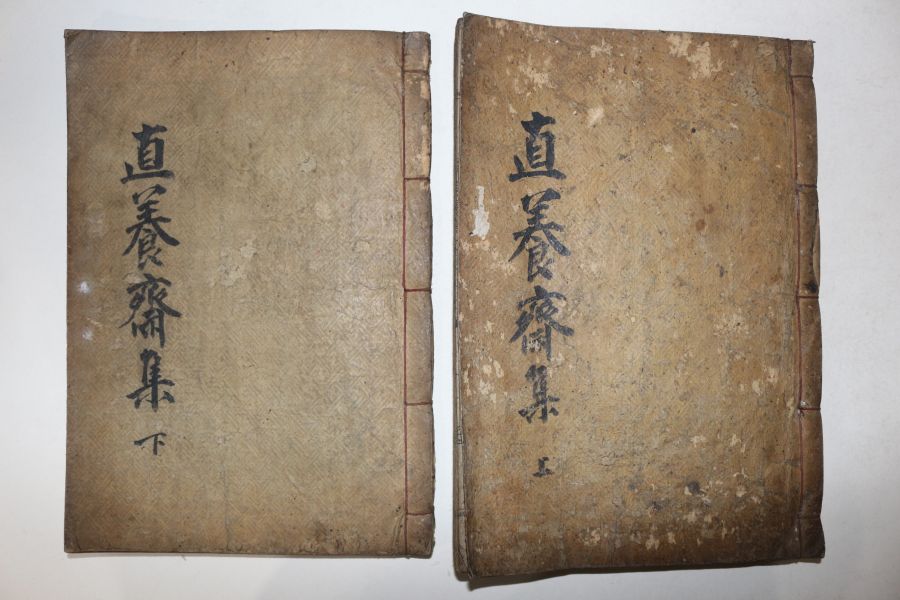 直養齋集 上
直養齋集 下